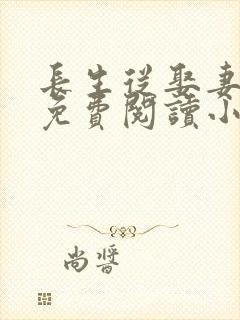 長生從娶妻
免費閱讀小
尚醬